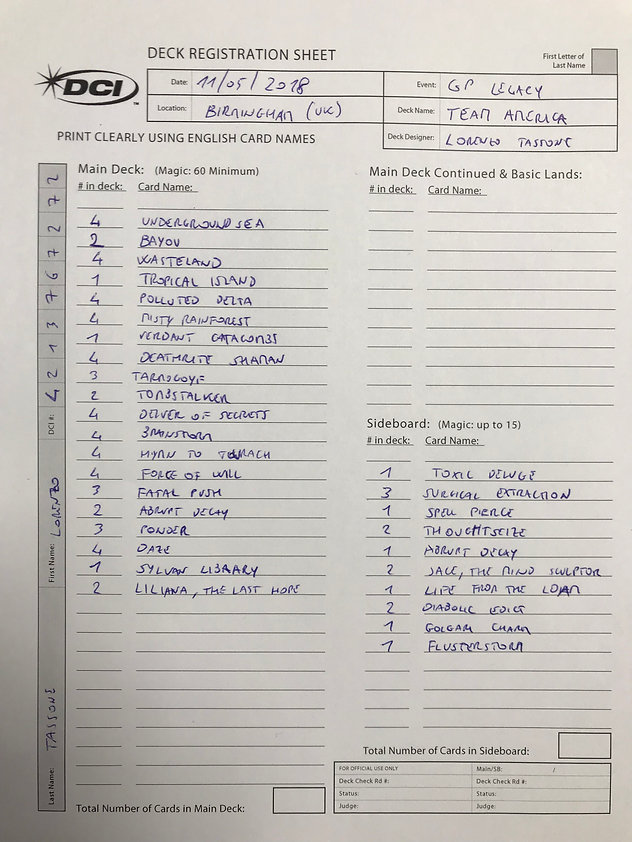 DECK REGISTRATION SHEET
First Letter of
Last Name
DCI™
Date: 11/05/2018
Event: GP LEGACY
Location: BIRMINGHAM (UK)
Deck Name: TEAM AMERICA
Deck Designer: LORENZO TASSONE
PRINT CLEARLY USING ENGLISH CARD NAMES
Last Name: TASSONE First Name: LORENZO DCI #: 4213767272
Main Deck: (Magic: 60 Minimum)
# in deck: Card Name:
4 UNDERGROUND SEA
2 BAYOU
4 WASTELAND
1 TROPICAL ISLAND
4 POLLUTED DELTA
4 MISTY RAINFOREST
1 VERDANT CATACOMBS
4 DEATHRITE SHAMAN
3 TARMOGOYF
2 TOMBSTALKER
4 DELVER OF SECRETS
4 BRAINSTORM
4 HYMN TO TOURACH
4 FORCE OF WILL
3 FATAL PUSH
2 ABRUPT DECAY
3 PONDER
4 DAZE
1 SYLVAN LIBRARY
2 LILIANA, THE LAST HOPE
Total Number of Cards in Main Deck:
Main Deck Continued & Basic Lands:
# in deck: Card Name:
Sideboard: (Magic: up to 15)
# in deck: Card Name:
1 TOXIC DELUGE
3 SURGICAL EXTRACTION
1 SPELL PIERCE
2 THOUGHTSEIZE
1 ABRUPT DECAY
2 JACE, THE MIND SCULPTOR
1 LIFE FROM THE LOAM
2 DIABOLIC EDICT
1 GOLGARI CHARM
1 FLUSTERSTORM
Total Number of Cards in Sideboard:
FOR OFFICIAL USE ONLY Main/SB: /
Deck Check Rd #: Deck Check Rd #:
Status: Status:
Judge: Judge: